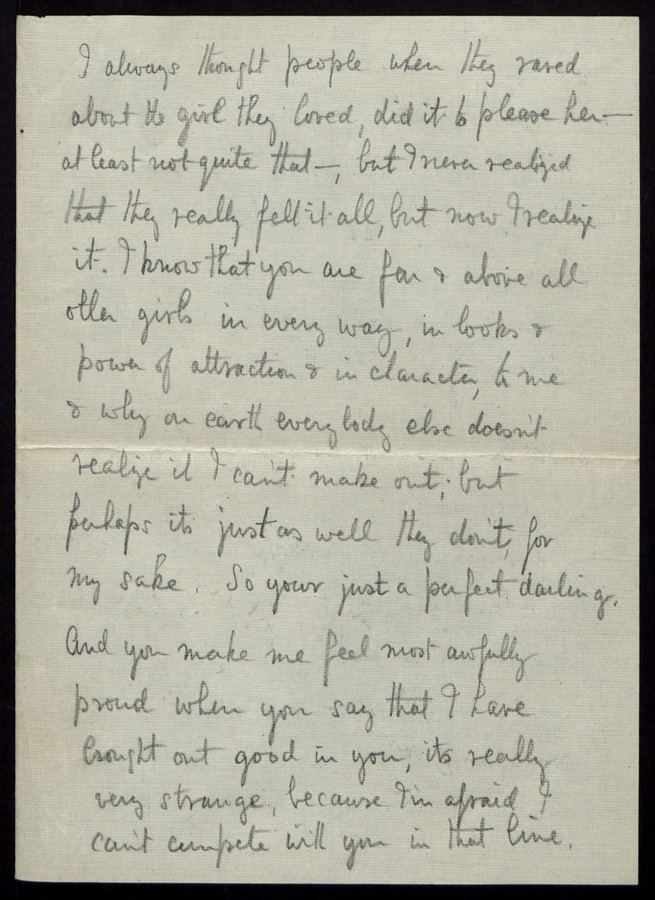 I always thought people when they raved
about the girl they loved, did it to please her—
at least not quite that—, but I never realized
that they really felt it all, but now I realize
it. I know that you are far & above all
other girls in every way, in looks &
power of attraction & in character, to me
& why on earth everybody else doesn't
realize it I can't make out, but
perhaps its just as well they don't, for
my sake. So your just a perfect darling.
And you make me feel most awfully
proud when you say that I have
brought out good in you, its really
very strange, because I'm afraid I
can't compete with you in that line.